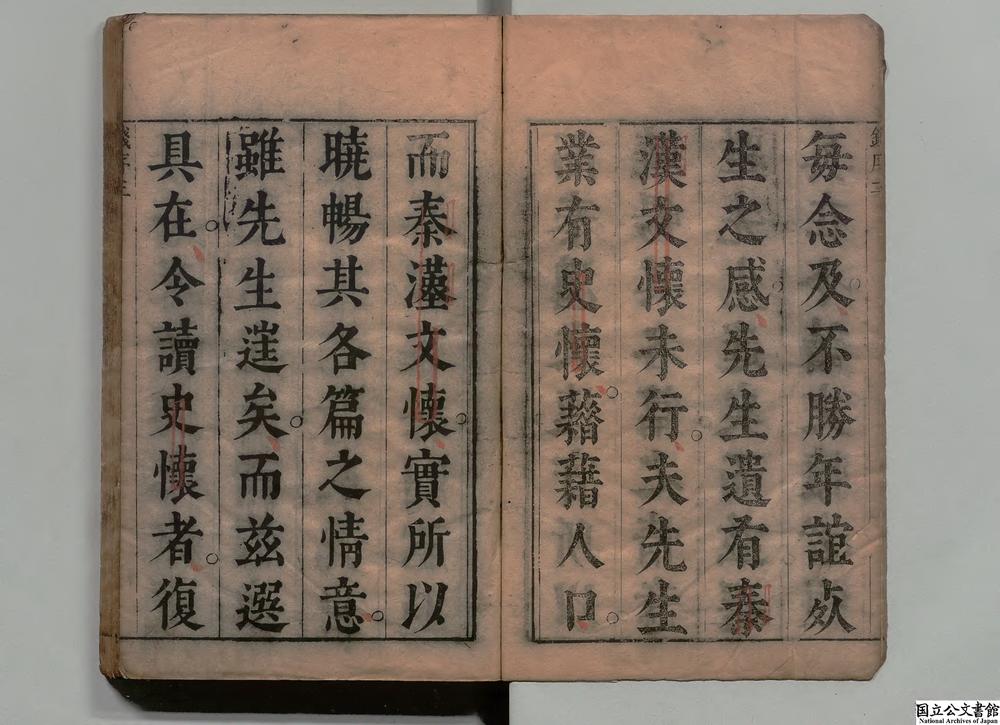 每念及不勝年誼夙
生之感先生遺有秦
漢文懷未行夫先生
業有史懷藉藉人口
而秦漢文懷實所以
曉暢其各篇之情意
雖先生逞矣而茲選
具在令讀史懷者復
国立公文書館
National Archives of Japan